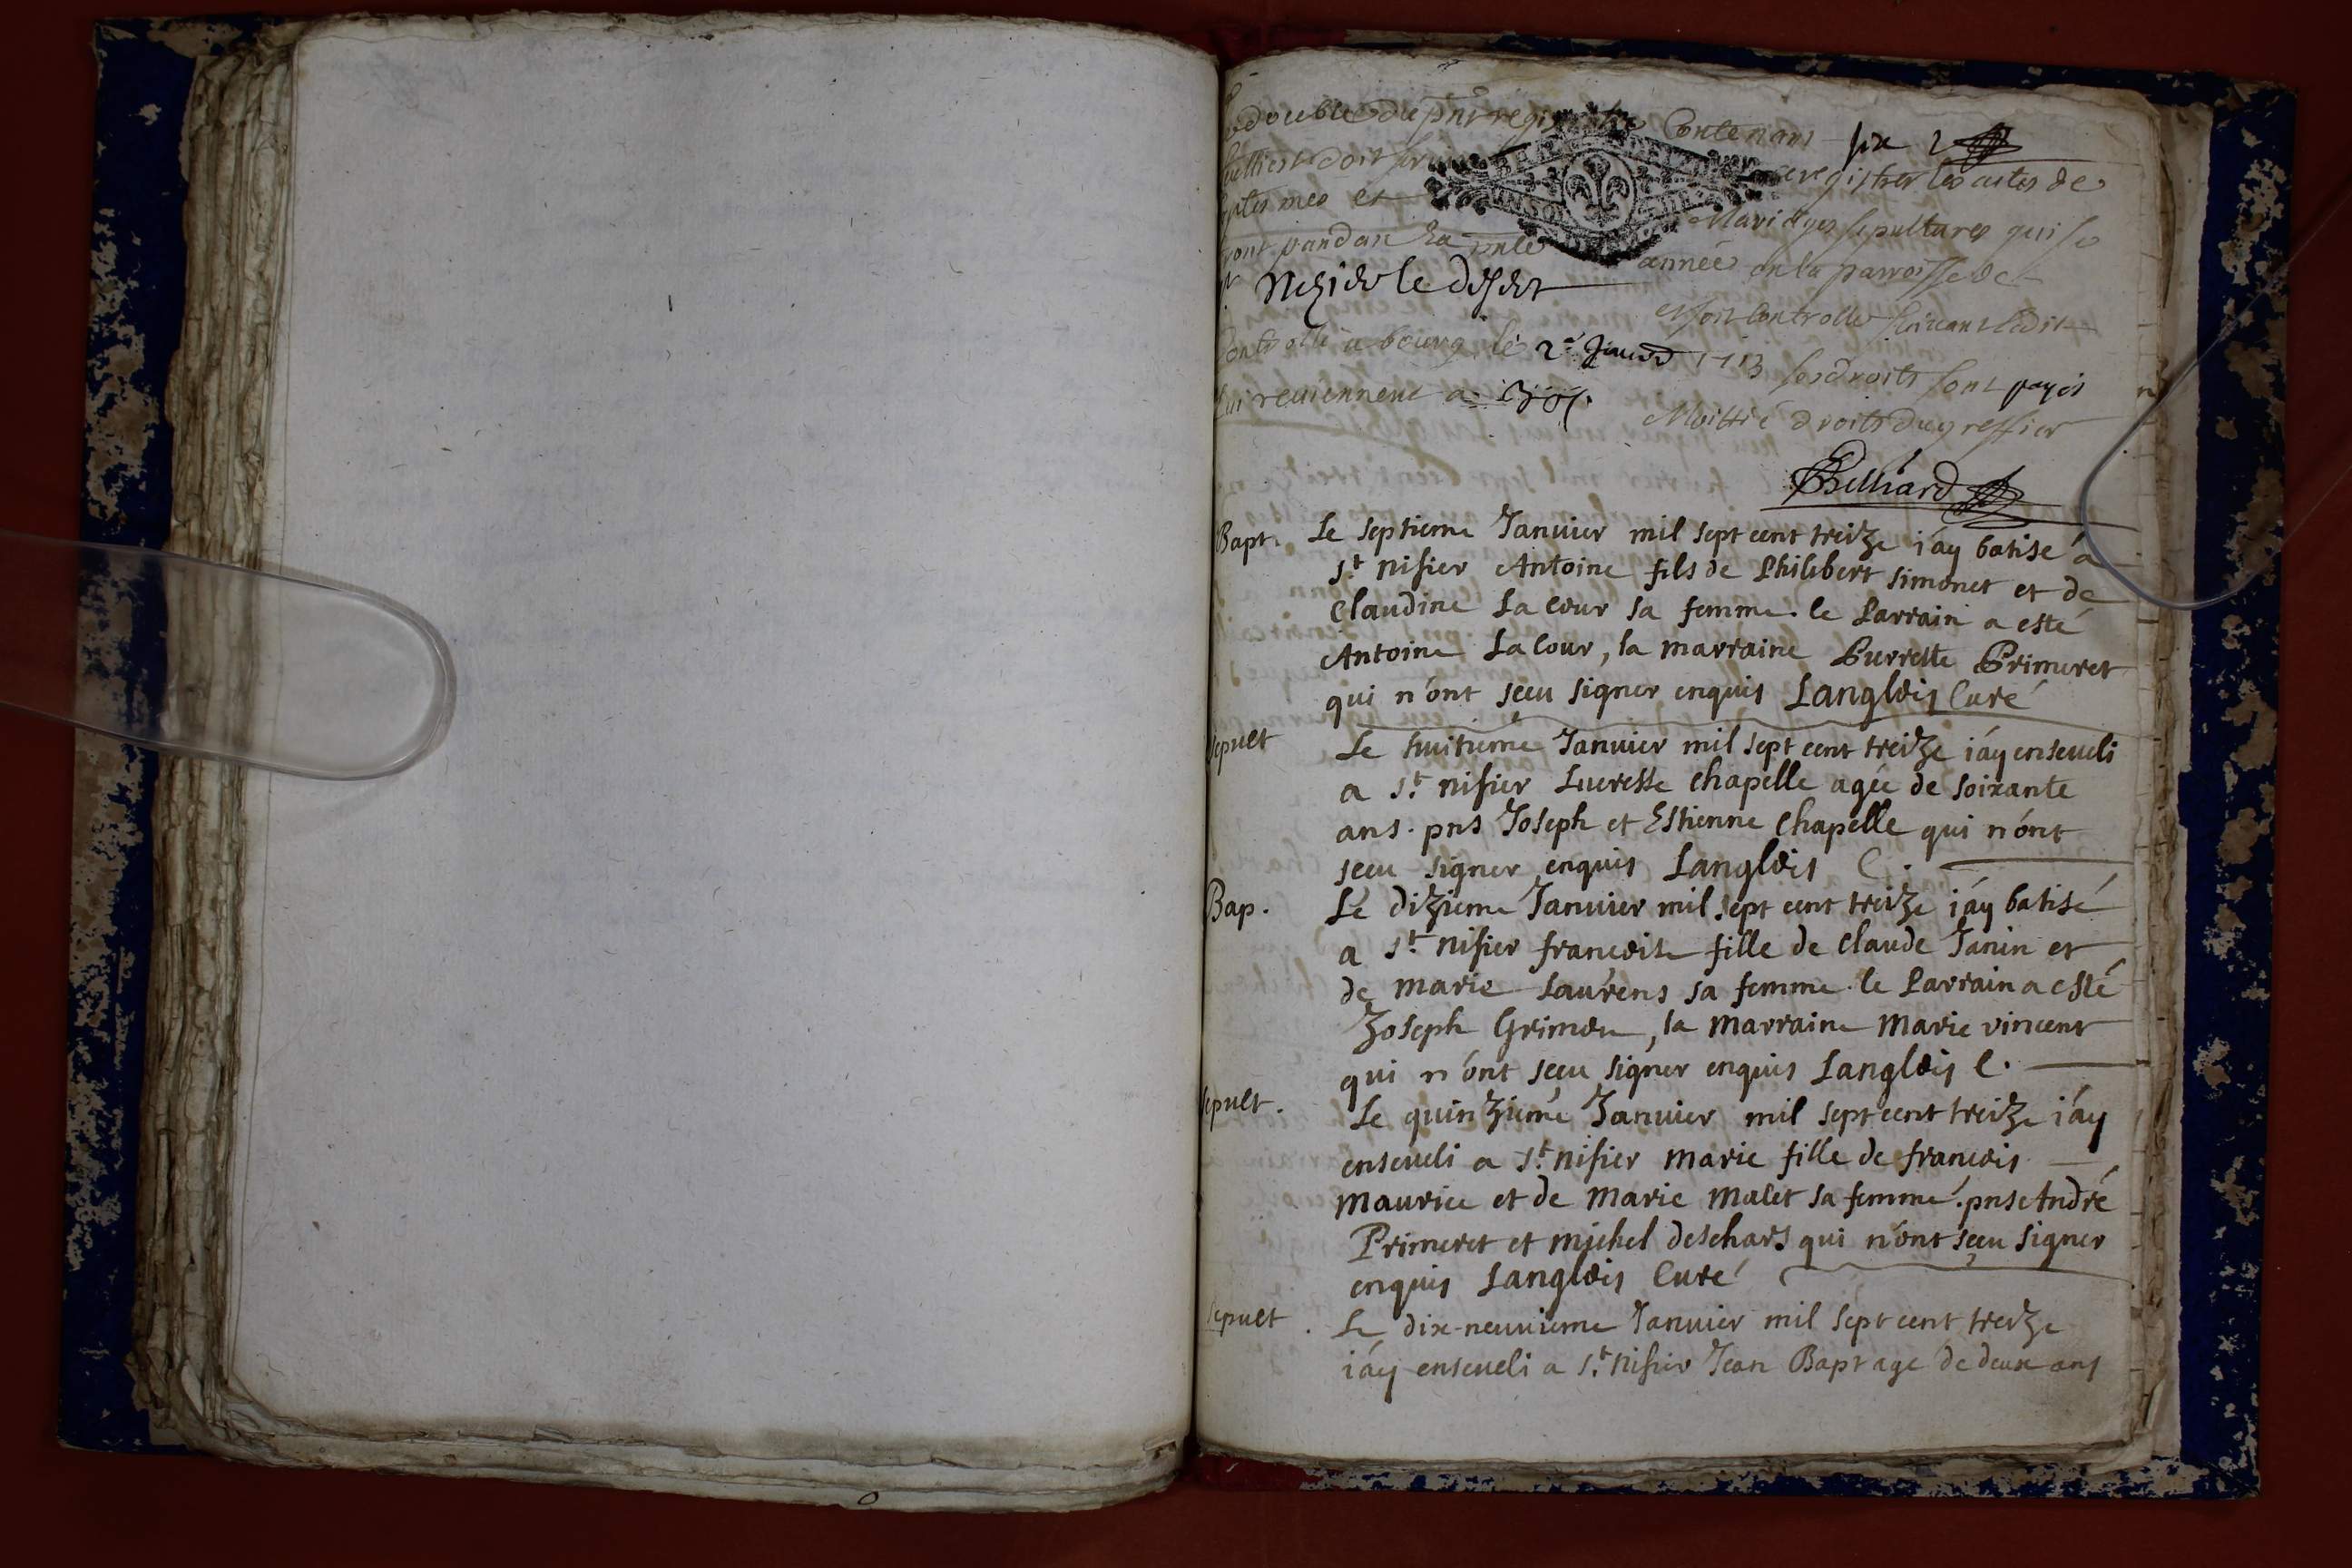 double du pnt registre Contenant six
feulliest doit servir enregistrer les actes de
et Mariages sepultures qui se
ront pandan la pnte année en la parroisse de
st Nizier le desert et soit Controllé suivant ledit
Controllé a bourg le 2e Janvier 1713 les droits sont payés
qui reviennent a Moittié droits du greffier
Belliard
Bapt. Le septieme Janvier mil sept cent treize i'ay batisé a
st nisier Antoine fils de Philibert simonet et de
Claudine La Cour sa femme. le Parrain a esté
Antoine La Cour, la marraine Purrette Primeret
qui n'ont sceu signer enquis Langlois Curé
sepult Le huitieme Janvier mil sept cent treize i'ay enseveli
a st nisier Lucresse Chapelle agée de soixante
ans. pns Joseph et Estienne Chapelle qui n'ont
sceu signer enquis Langlois C.
Bap. Le dizieme Janvier mil sept cent treize i'ay batisé
a st nisier francoise fille de Claude Janin et
de marie Laurens sa femme. le Parrain a esté
Joseph Grimou, la Marraine Marie vincent
qui n'ont sceu signer enquis Langlois C.
sepult. Le quinzieme Janvier mil sept cent treize i'ay
enseveli a st nisier marie fille de francois
maurice et de marie malet sa femme. pns André
Primeret et michel deschars qui n'ont sceu signer
enquis Langlois Curé
sepult. Le dix-neuvieme Janvier mil sept cent treize
i'ay enseveli a st nisier Jean Bapt age de deux ans